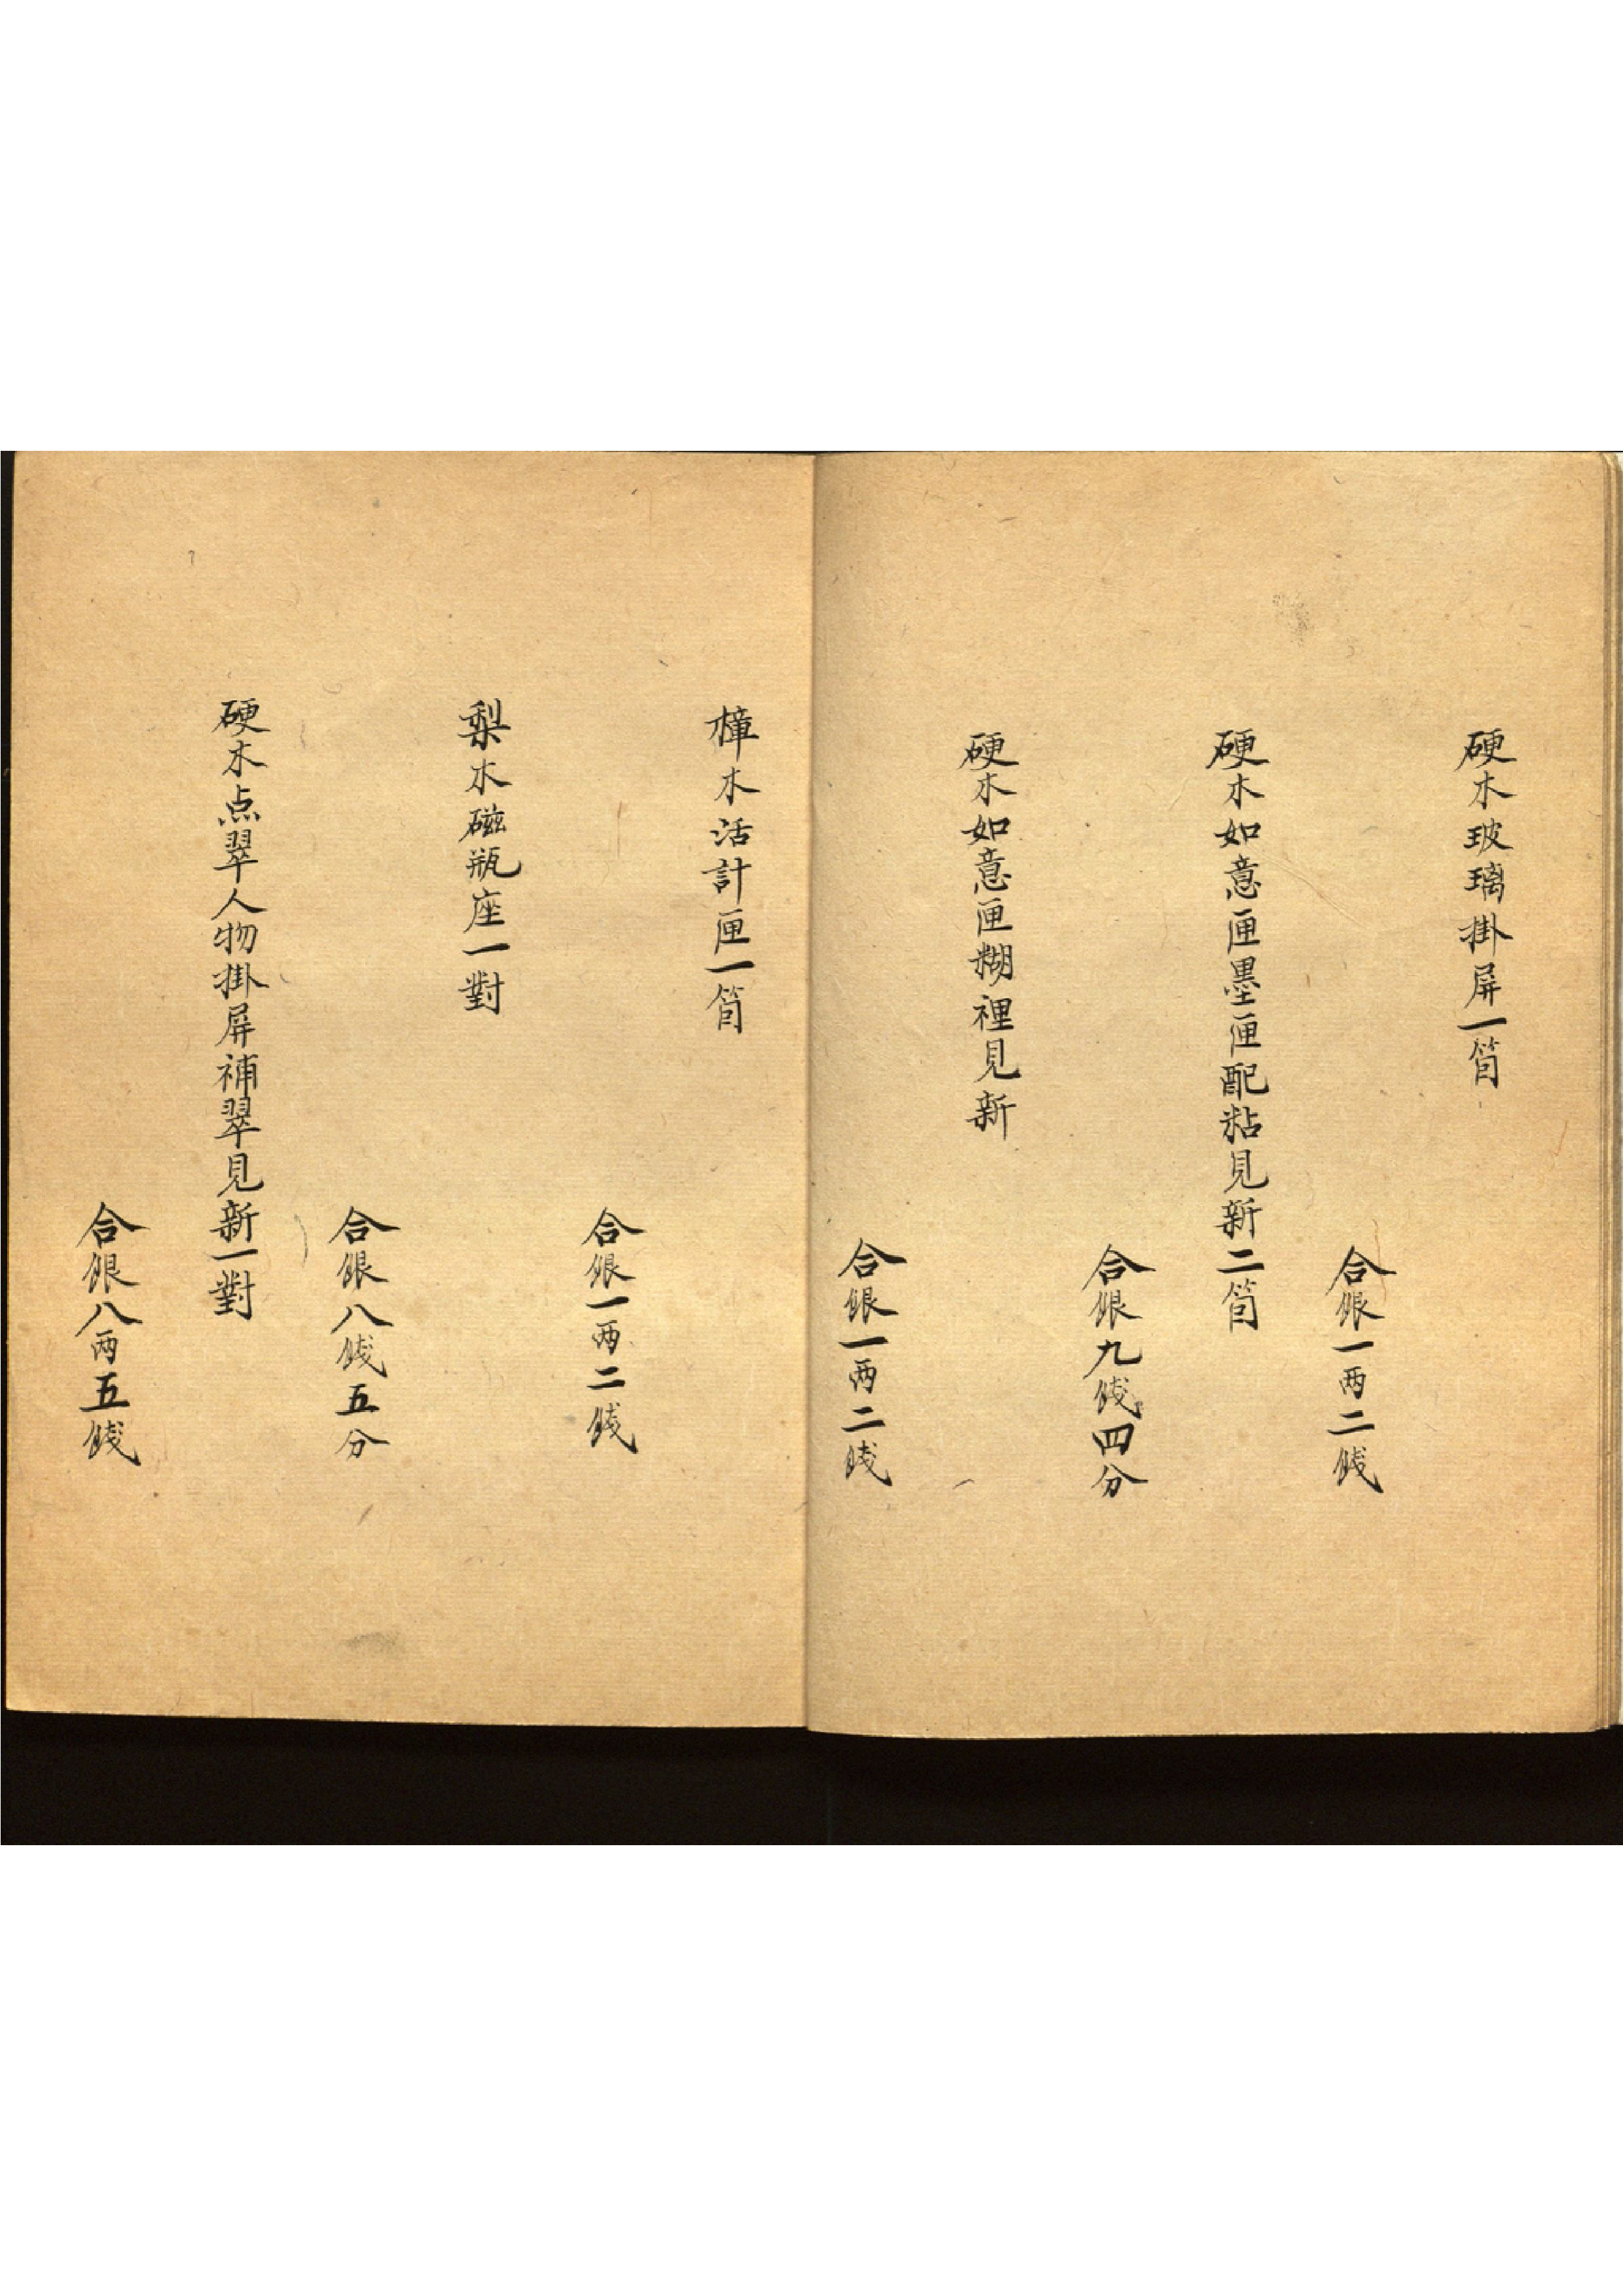 硬木玻璃掛屏一箇
合銀一两二錢
硬木如意匣墨匣配粘見新二箇
合銀九錢四分
硬木如意匣糊裡見新
合銀一两二錢
樟木活計匣一箇
合銀一两二錢
梨木磁瓶座一對
合銀八錢五分
硬木点翠人物掛屏補翠見新一對
合銀八两五錢